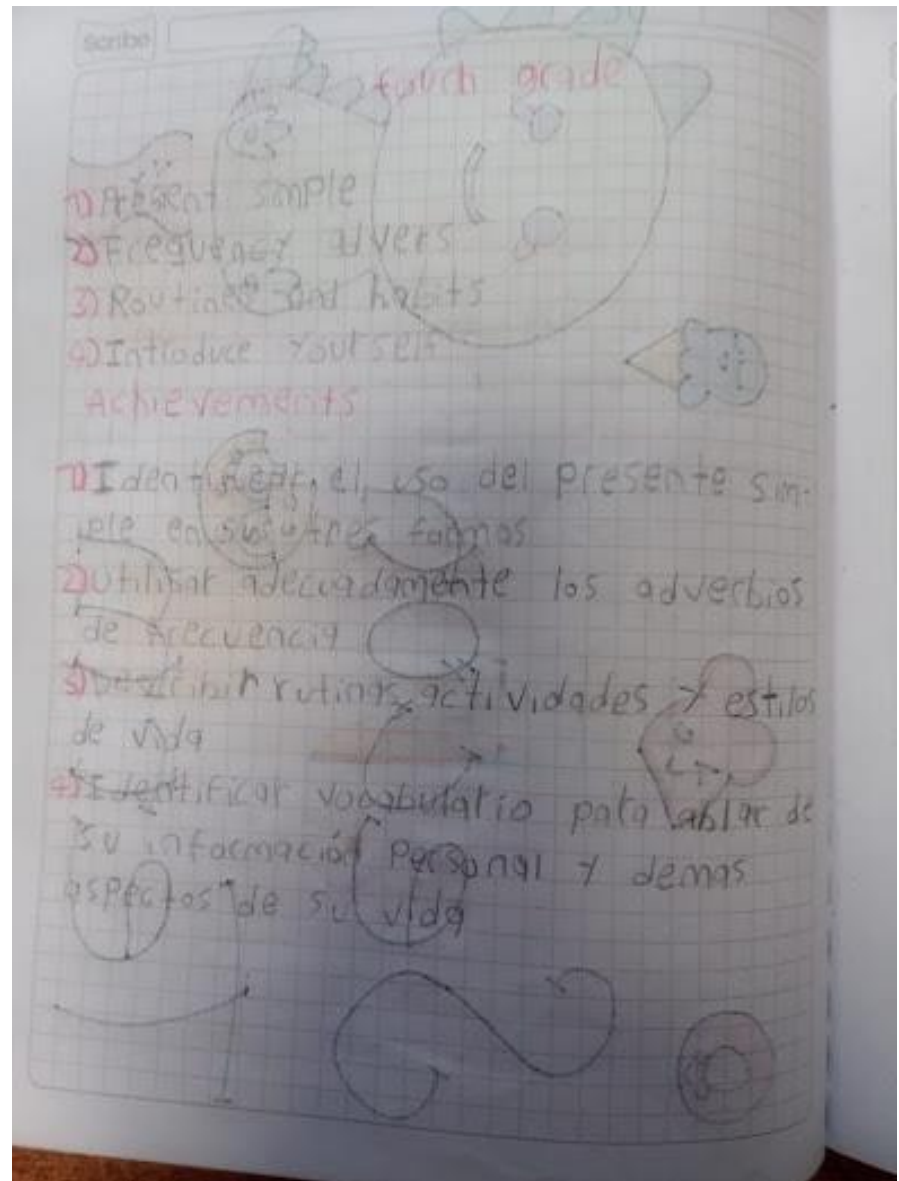 Scribe
fourth grade
1) Present simple
2) Frequency advers
3) Routines and habits
4) Introduce Yourself
Achievements
1) Identificar el uso del presente sim-
ple en sus tres formas
2) Utilisar adecuadamente los adverbios
de frecuencia
3) Describir rutinas, actividades y estilos
de vida
4) Identificar vocabulario para ablar de
su información Personal y demas
aspectos de su vida